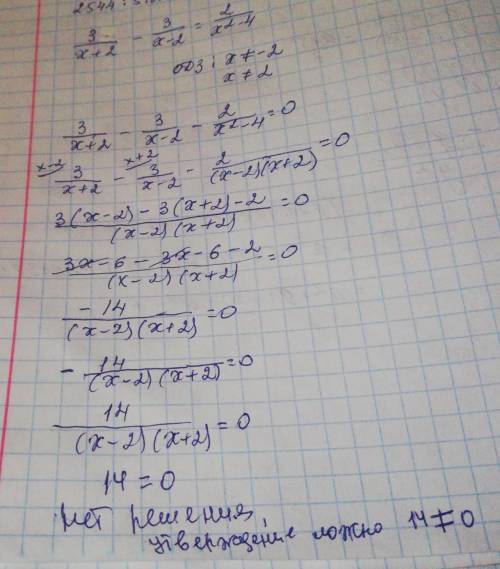 3/(x+2) - 3/(x-2) = 2/(x²-4)
ОДЗ: x ≠ -2
x ≠ 2
3/(x+2) - 3/(x-2) - 2/(x²-4) = 0
x-2 x+2
3/(x+2) - 3/(x-2) - 2/((x-2)(x+2)) = 0
(3(x-2) - 3(x+2) - 2)/((x-2)(x+2)) = 0
(3x - 6 - 3x - 6 - 2)/((x-2)(x+2)) = 0
-14/((x-2)(x+2)) = 0
- 14/((x-2)(x+2)) = 0
14/((x-2)(x+2)) = 0
14 = 0
Нет решения,
утверждение ложно 14 ≠ 0